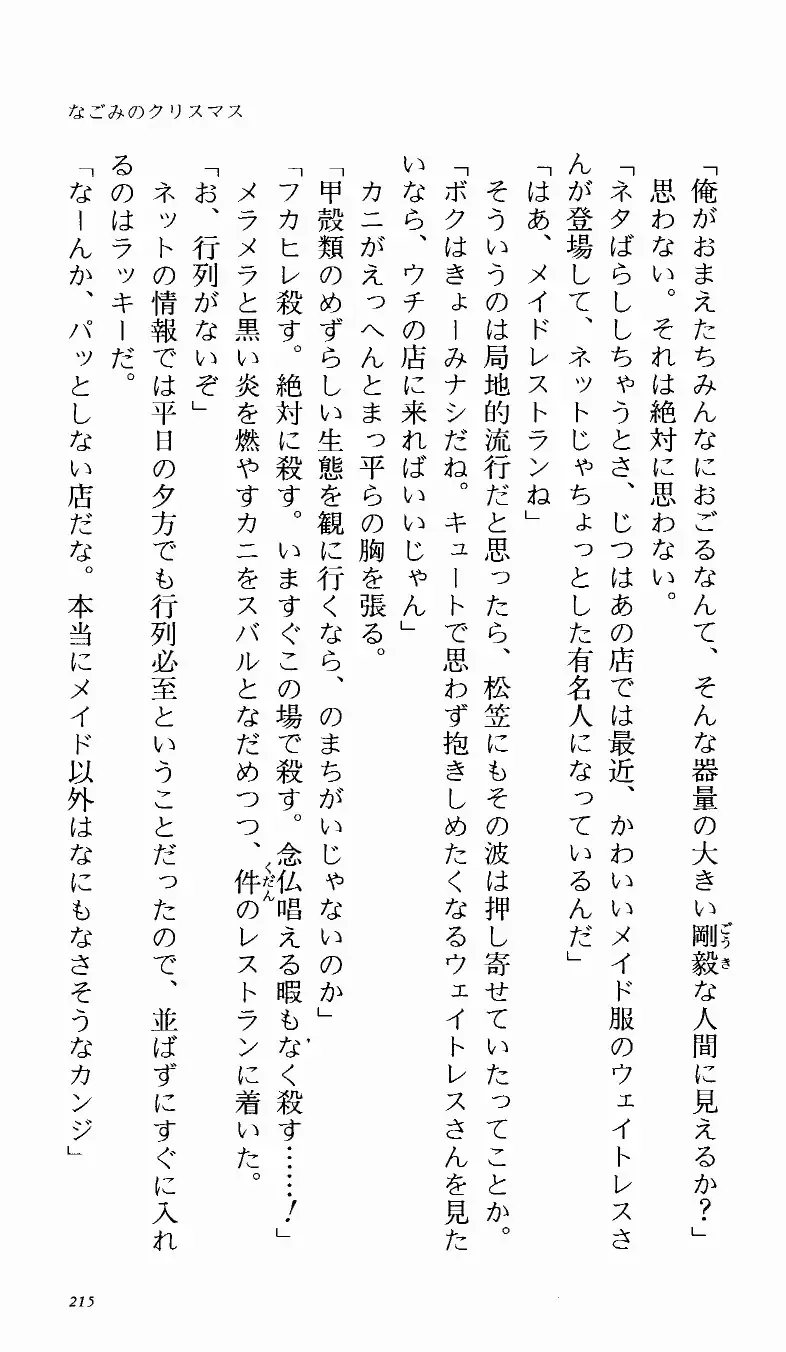 なごみのクリスマス
「俺がおまえたちみんなにおごるなんて、そんな器量の大きい剛毅な人間に見えるか？」
ごうき
思わない。それは絶対に思わない。
「ネタばらししちゃうとさ、じつはあの店では最近、かわいいメイド服のウェイトレスさ
んが登場して、ネットじゃちょっとした有名人になっているんだ」
「はあ、メイドレストランね」
そういうのは局地的流行だと思ったら、松笠にもその波は押し寄せていたってことか。
「ボクはきょーみナシだね。キュートで思わず抱きしめたくなるウェイトレスさんを見た
いなら、ウチの店に来ればいいじゃん」
カニがえっへんとまっ平らの胸を張る。
「甲殻類のめずらしい生態を観に行くなら、のまちがいじゃないのか」
「フカヒレ殺す。絶対に殺す。いますぐこの場で殺す。念仏唱える暇もなく殺す……！」
メラメラと黒い炎を燃やすカニをスバルとなだめつつ、件のレストランに着いた。
くだん
「お、行列がないぞ」
ネットの情報では平日の夕方でも行列必至ということだったので、並ばずにすぐに入れ
るのはラッキーだ。
「なーんか、パッとしない店だな。本当にメイド以外はなにもなさそうなカンジ」
215